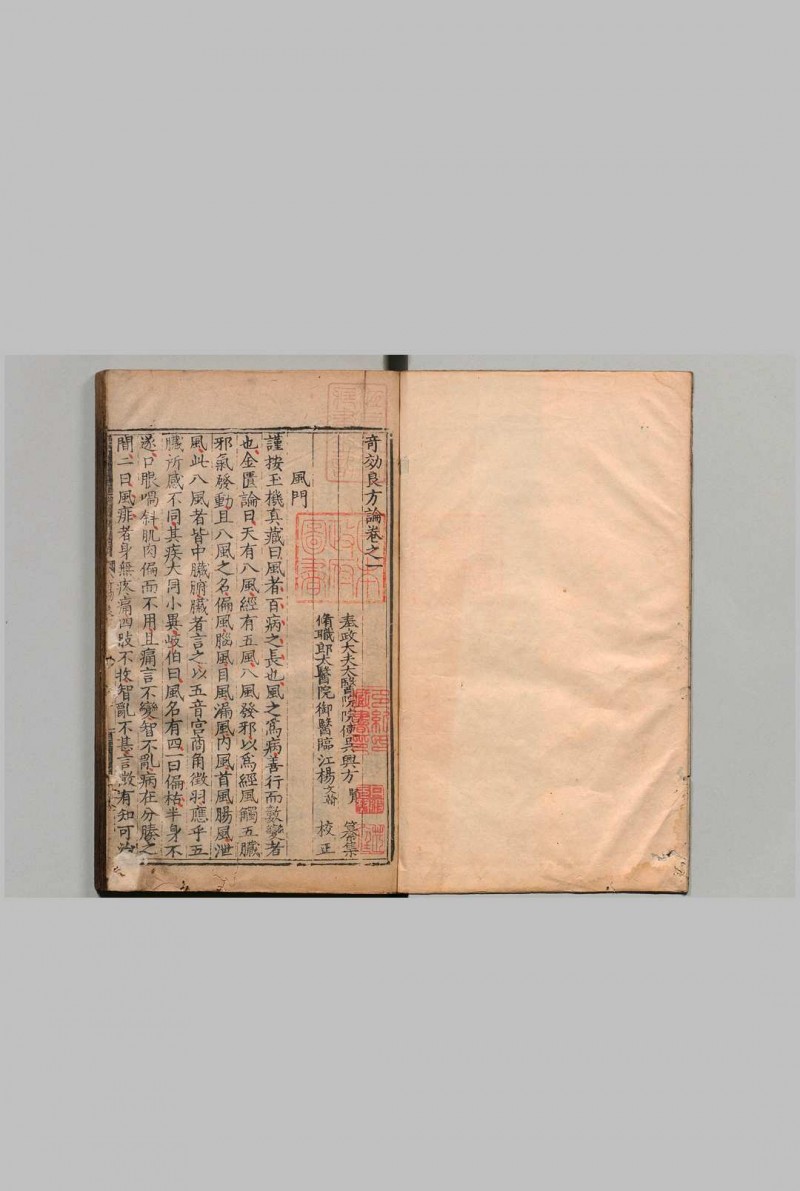 奇効良方論卷之一
奉政大夫太醫院院使吳興方賢纂集
脩職郎太醫院御醫臨江楊文翰校正
風門
謹按玉機真藏曰風者百病之長也風之爲病善行而數變者
也金匱論曰天有八風經有五風八風發邪以爲經風觸五臟
邪氣發動且八風之名偏風腦風目風漏風內風首風腸風泄
風此八風者皆中臟腑臟者言之以五音宮商角徵羽應乎五
臟所感不同其疾大同小異岐伯曰風名有四一曰偏枯半身不
遂口眼喎斜肌肉偏而不用且痛言不變智不亂病在分腠之
間二曰風痱者身無疼痛四肢不收智亂不甚言微有知可治